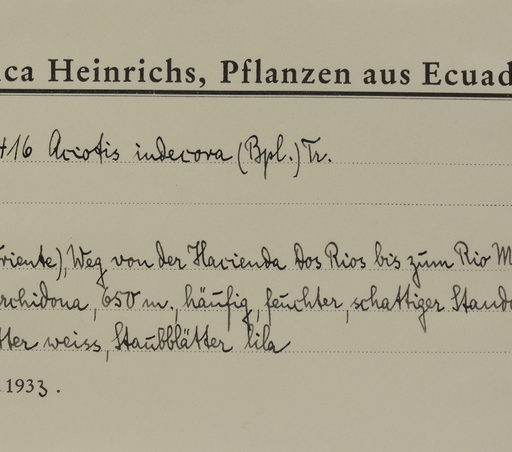 ica Heinrichs, Pflanzen aus Ecuad
416 Aciotis indecora (Bpl.) Tr.
Oriente), Weg von der Hacienda Dos Rios bis zum Rio M
rchidona, 650 m., häufig, feuchter, schattiger Stando
tter weiss, Staubblätter lila
1933.